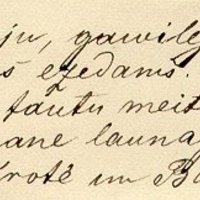 ju, gawilej
s ezedams.
tautu meit
ane launa
krotē un Ba